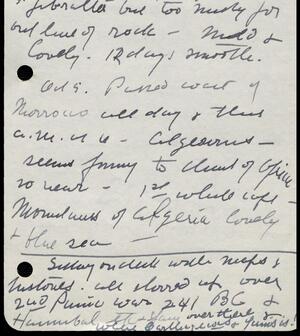 Gibralta but too misty for
outline of rock - Mild &
lovely. 12 days smooth.
Oct 9. Passed coast of
Morroco all day & this
a.m. it is - Algeria -
seems funny to think of Africa
so near - 1st whole cape -
Mountains of Algeria lovely
& blue sea -
Sitting on deck with maps &
histories: all stirred up over
2nd Punic war 241 BC &
Hannibal over there &
where Carthage was Tunis is.